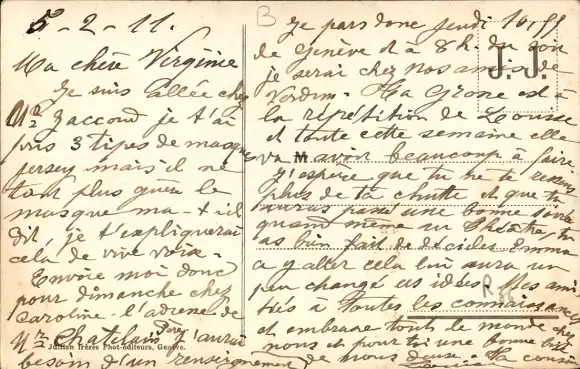 5-2-11.
Ma chère Virginie
Je suis allée chez
Mr Jaccoud je t'ai
pris 3 tipes de masque
jersey mais il ne
tant plus guère le
masque ma-t-il
dit, je t'expliquerai
cela de vive voix.
Envoie moi donc
pour dimanche chez
Caroline l'adresse de
Mr Chatelain Père j'aurai
besoin d'un renseignement
Jullien frères Phot-éditeurs, Genève.
B
Je pars donc jeudi
de Genève et à 8 h. du soir
je serai chez nos amis de
Verdun. Ma Grone est à
la répétition de
et toute cette semaine elle
va avoir beaucoup à faire
J'espère que tu ne te
plus de ta chutte et que tu
auras passé une bonne
quand même au Théâtre, tu
as bien fait de décider Emma
a y aller cela lui aura un
peu changé as idées. Mes ami
tiés à toutes les connaissances
et embrasse tout le monde chez
nous et pour toi une bonne
de nous deux. Ta cousine
J.J.